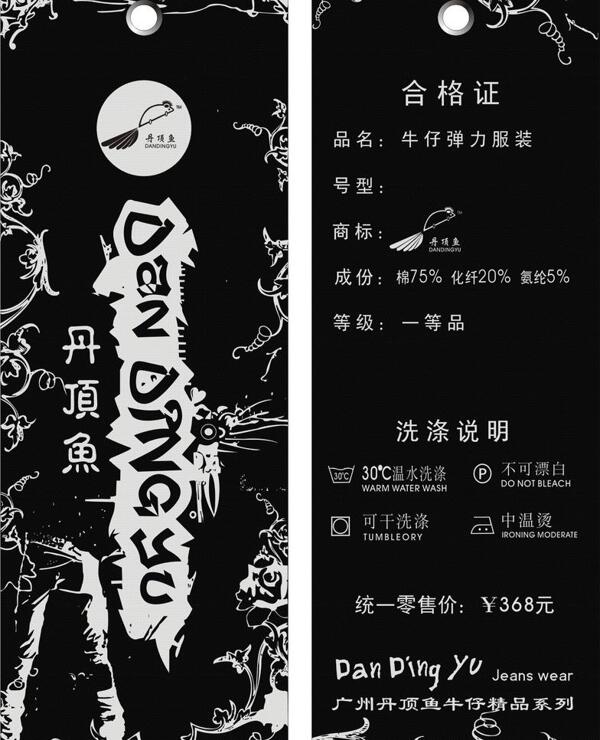 TM
丹顶鱼
DANDINGYU
Dan DiNG yu
丹頂魚
合格证
品名：牛仔弹力服装
号型：
商标：
TM
丹顶鱼
DANDINGYU
成份：棉75% 化纤20% 氨纶5%
等级：一等品
洗涤说明
30℃ 30℃温水洗涤
WARM WATER WASH
P 不可漂白
DO NOT BLEACH
可干洗涤
TUMBLEORY
中温烫
IRONING MODERATE
统一零售价：￥368元
Dan Ding Yu Jeans wear
广州丹顶鱼牛仔精品系列